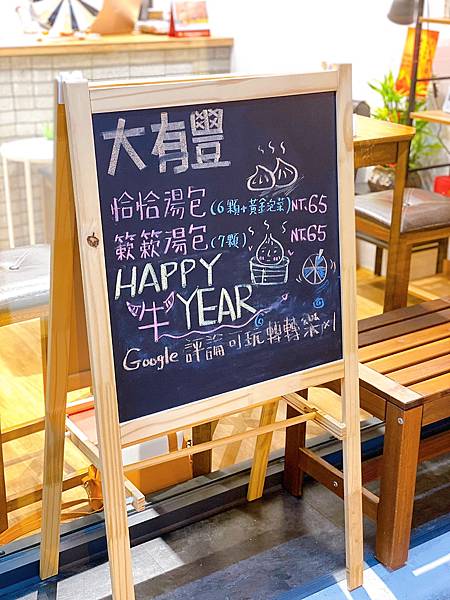 大有豐
恰恰湯包(6顆+黃金泡菜)NT.65
簌簌湯包(7顆)NT.65
HAPPY
牛YEAR
Google 評論可玩轉轉樂x1